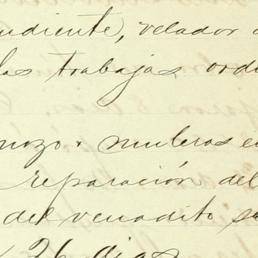 udiente, velador
las trabajas ord
mozo. muleros e
reparación del
del venadito s
26 dias